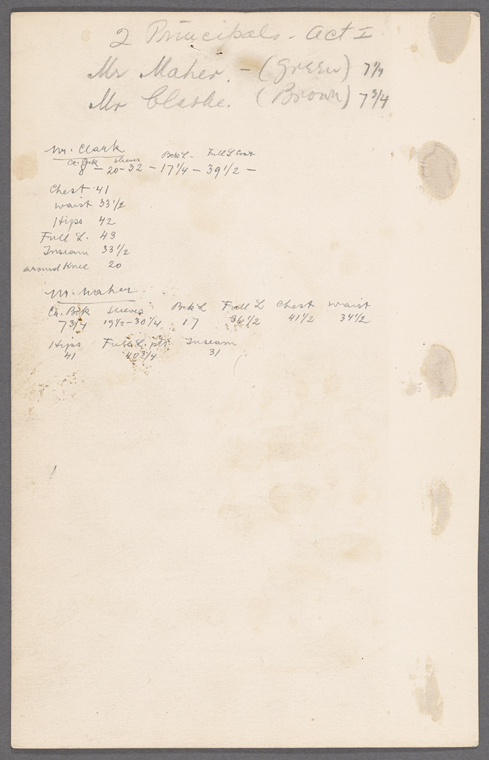 2 Principals - Act I
Mr Maher. - (Green) 7 1/8
Mr Clarke. (Brown) 7 3/4
Mr. Clark
Ac. Bck Sleeve Bck L. Full L Coat
8 - 20-32 - 17 1/4 - 39 1/2 -
Chest 41
Waist 33 1/2
Hips 42
Full L. 43
Inseam 33 1/2
around Knee 20
Mr. Maher
Ac. Bck Sleeves Bck L Full L Chest Waist
7 3/4 19 1/2 - 30 1/4 17 36 1/2 41 1/2 34 1/2
Hips Full L. Inseam
41 40 3/4 31